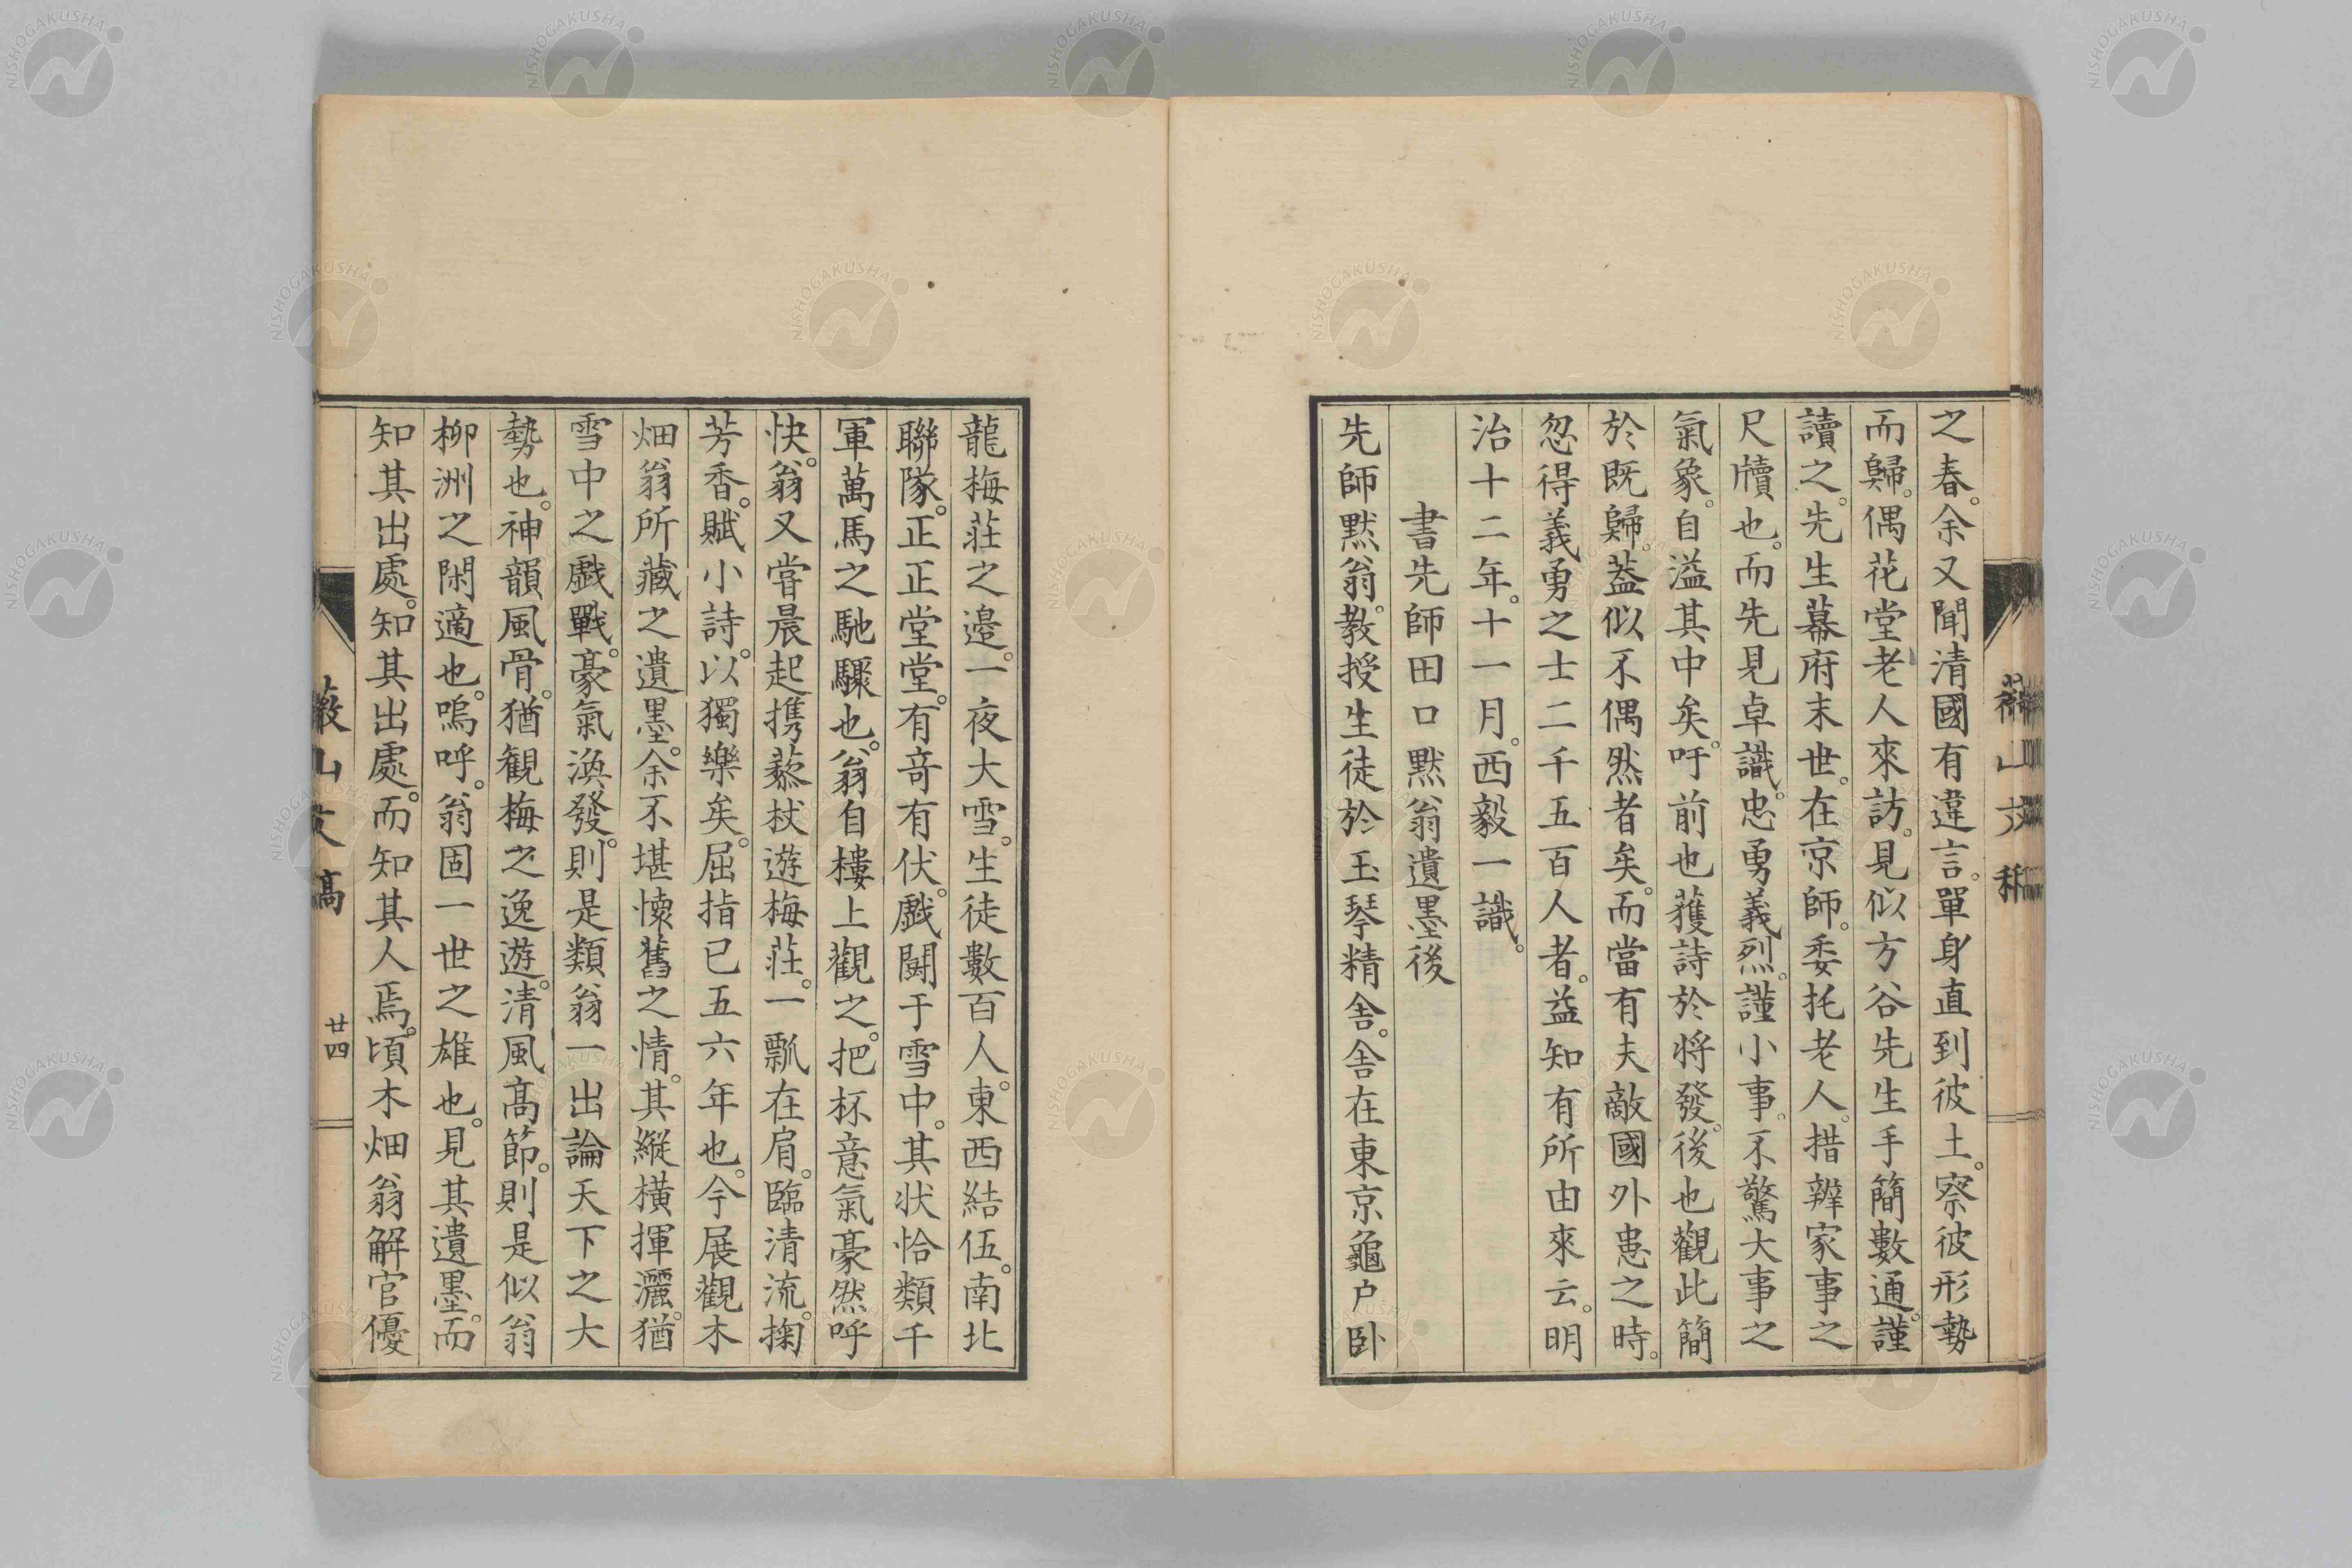 之春。余又聞清國有違言。單身直到彼土。察彼形勢
而歸。偶花堂老人來訪。見似方谷先生手簡數通。謹
讀之。先生幕府末世。在京師。委托老人。措辨家事之
尺牘也。而先見卓識。忠勇義烈。謹小事。不驚大事之
氣象。自溢其中矣。吁前也獲詩於將發。後也觀此簡
於既歸。蓋似不偶然者矣。而當有夫敵國外患之時。
忽得義勇之士二千五百人者。益知有所由來云。明
治十二年。十一月。西毅一識。
書先師田口默翁遺墨後
先師默翁。教授生徒於玉琴精舍。舍在東京龜戶臥
龍梅莊之邉。一夜大雪。生徒數百人。東西結伍。南北
聯隊。正正堂堂。有竒有伏。戲鬪于雪中。其狀恰類千
軍萬馬之馳驟也。翁自樓上觀之。把杯意氣豪然呼
快。翁又嘗晨起携藜杖遊梅莊。一瓢在肩。臨清流。掬
芳香。賦小詩。以獨樂矣。屈指已五六年也。今展觀木
畑翁所藏之遺墨。余不堪懷舊之情。其縱橫揮灑。猶
雪中之戲戰。豪氣渙發。則是類翁一出論天下之大
勢也。神韻風骨。猶観梅之逸遊。清風高節。則是似翁
柳洲之閑適也。嗚呼。翁固一世之雄也。見其遺墨。而
知其出處。知其出處。而知其人焉。頃木畑翁解官優
薇山文稿
廿四
NISHOGAKUSHA